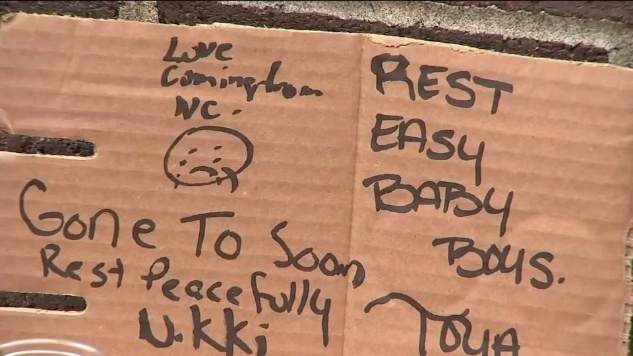 Love
Coming from
NC.
Gone To Soon
Rest Peacefully
Nikki
REST
EASY
BABY
BOYS.
TOYA